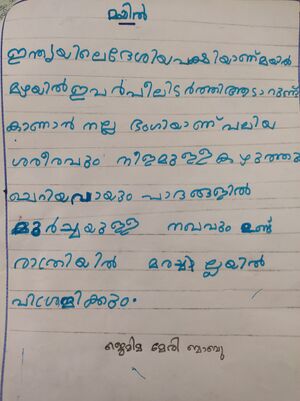 മയിൽ
ഇന്ത്യയിലെ ദേശിയ പക്ഷിയാണ് മയിൽ
മഴയിൽ ഇവർ പീലിടർത്തി ആടാറുണ്ട്
കാണാൻ നല്ല ഭംഗിയാണ് വലിയ
ശരീരവും നീളമുള്ള കഴുത്തും
ചെറിയ വായും പാദങ്ങളിൽ
മൂർച്ചയുള്ള നഖവും ഉണ്ട്
രാത്രിയിൽ മരച്ചില്ലയിൽ
വിശ്രമിക്കും.
ജെമിമ മേരി ബാബു